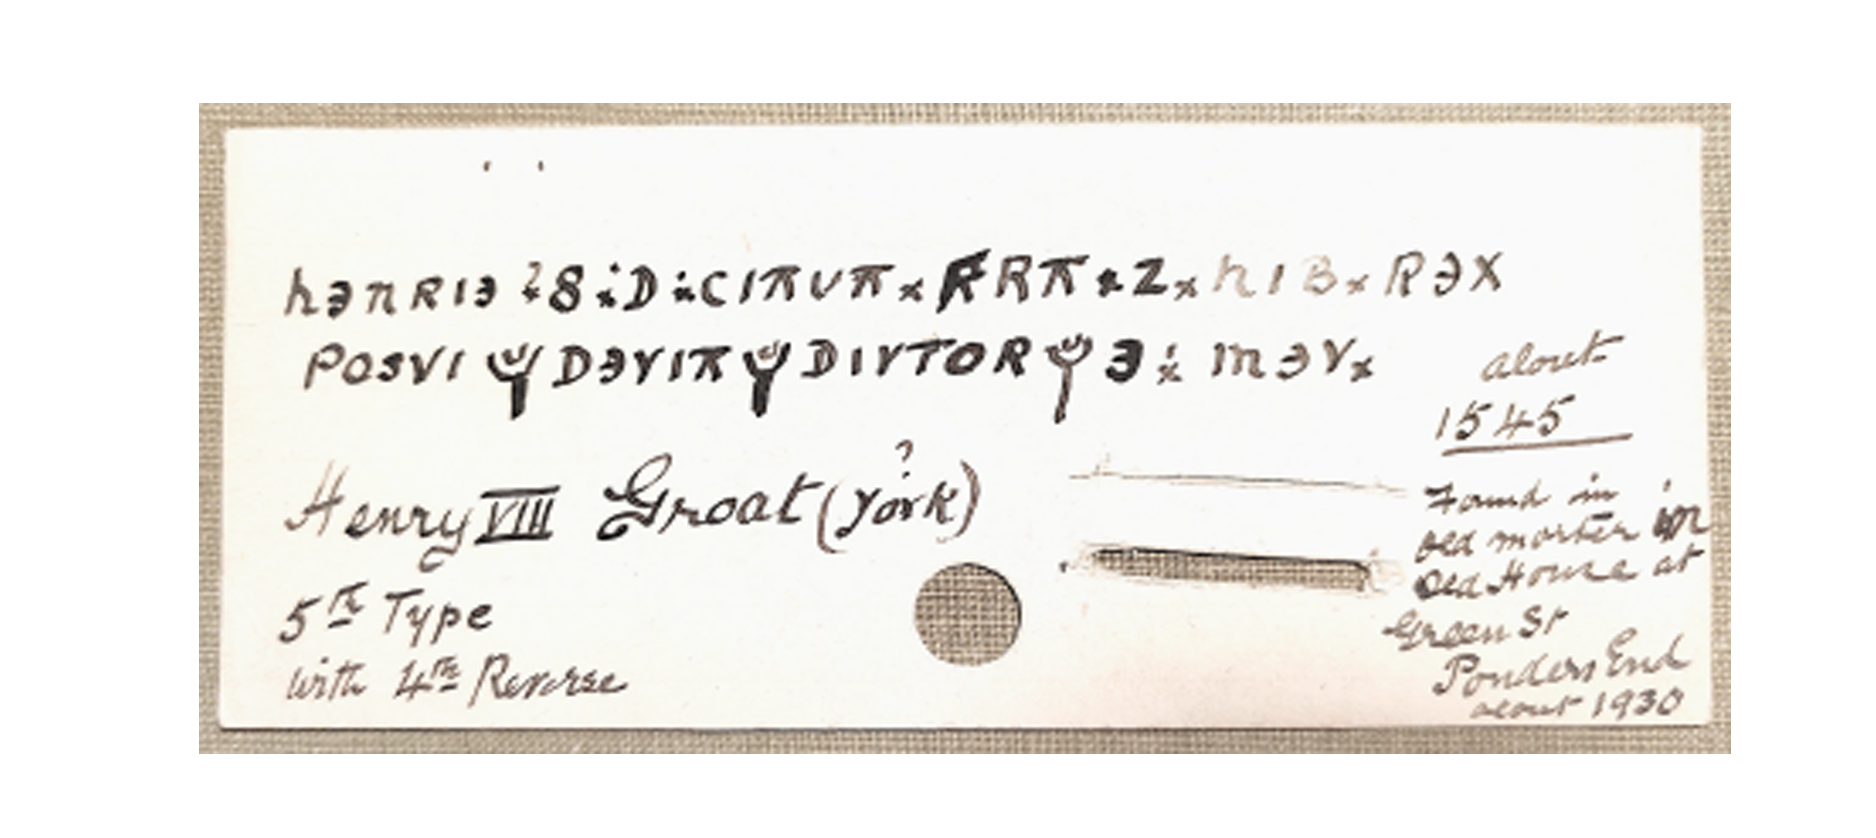 hƎnRIƎ 8 D CIΠUΠ × FRΠ × Z × hIB × RƎX
POSVI Ψ DƎVIΠ Ψ DIVTOR Ψ Ǝ × mƎV×
about
1545
Henry VIII Groat (? York)
5th Type
with 4th Reverse
Found in
old morter in
Old House at
Green St
Ponders End
about 1930